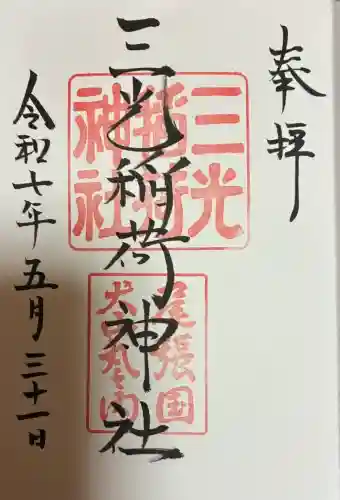 奉拝
三光稲荷神社
三光
稲荷
神社
尾張国
犬山丸之内
令和七年五月三十一日